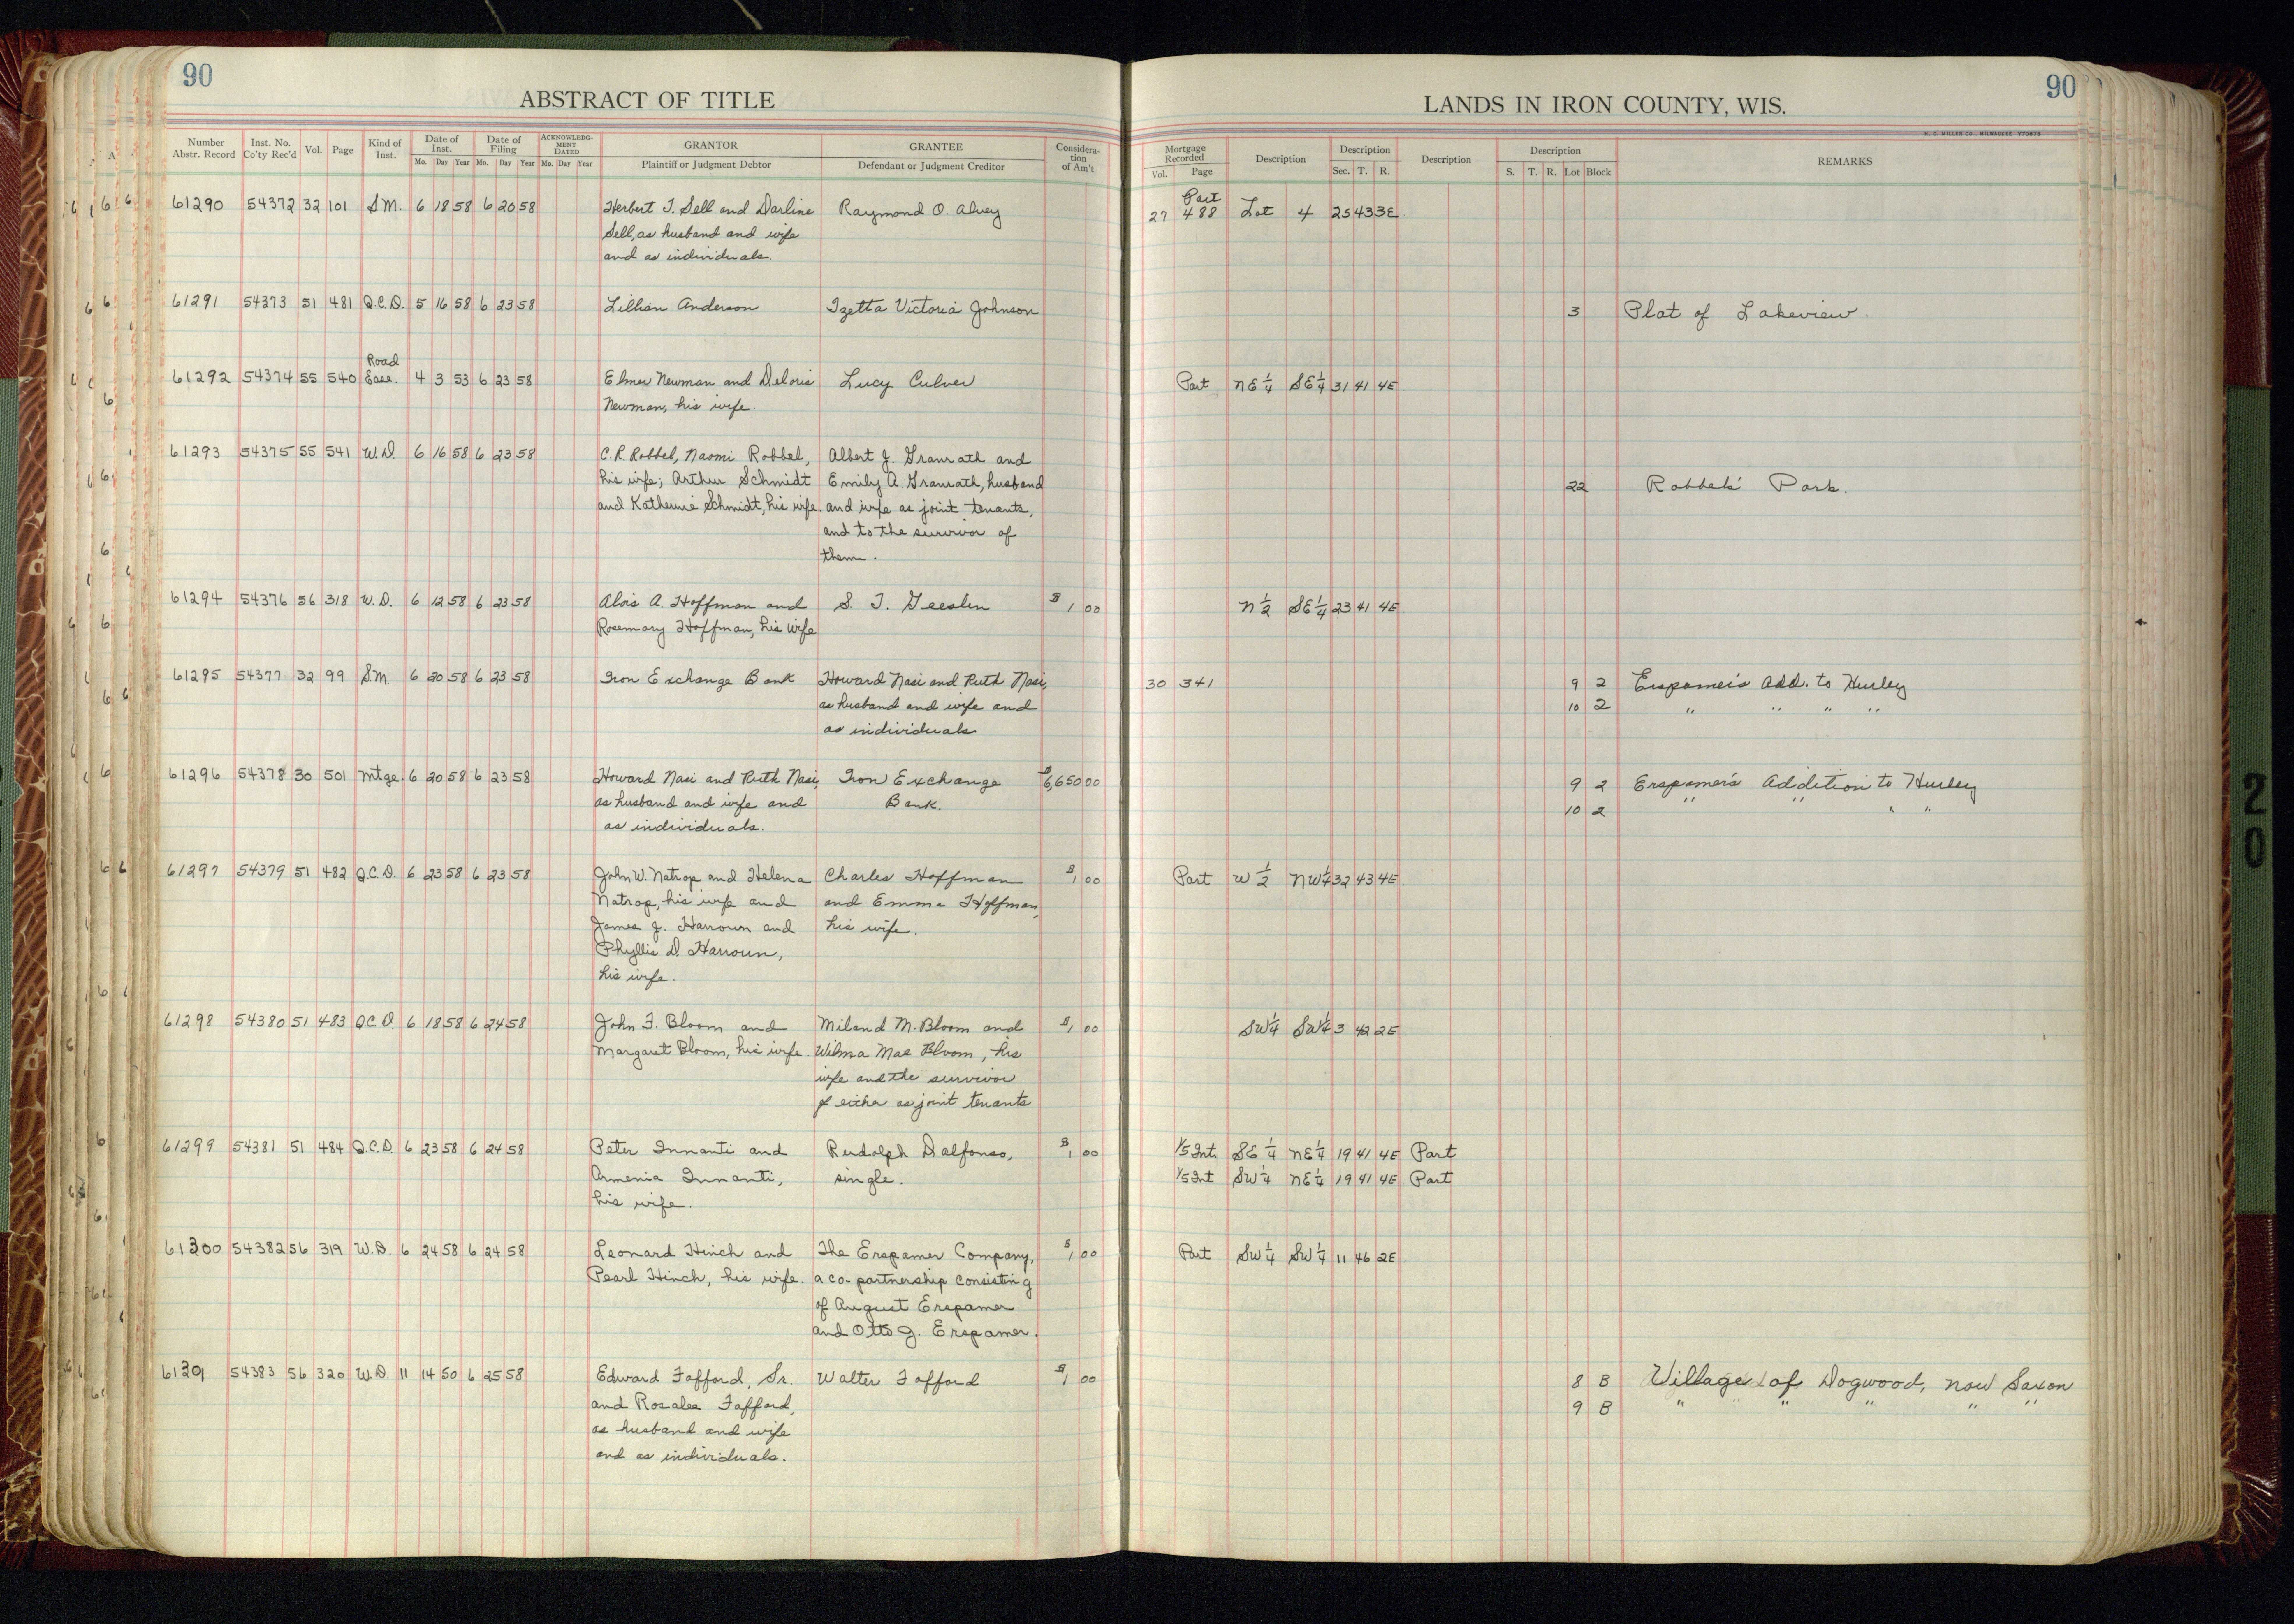 90
ABSTRACT OF TITLE
Number Abstr. Record | Inst. No. Co'ty Rec'd | Vol. | Page | Kind of Inst. | Date of Inst. Mo. Day Year | Date of Filing Mo. Day Year | ACKNOWLEDGMENT DATED Mo. Day Year | GRANTOR Plaintiff or Judgment Debtor | GRANTEE Defendant or Judgment Creditor | Consideration of Am't
61290 54372 32 101 S.M. 6 18 58 6 20 58 Herbert T. Sell and Darline Raymond O. Alvey
Sell, as husband and wife
and as individuals.
61291 54373 51 481 Q.C.D. 5 16 58 6 23 58 Lillian Anderson Izetta Victoria Johnson
Road
61292 54374 55 540 Ease. 4 3 53 6 23 58 Elmer Newman and Deloris Lucy Culver
Newman, his wife.
61293 54375 55 541 W.D. 6 16 58 6 23 58 C.R. Robbel, Naomi Robbel, Albert J. Granrath and
his wife; Arthur Schmidt Emily A. Granrath, husband
and Katherine Schmidt, his wife. and wife as joint tenants,
and to the survivor of
them.
61294 54376 56 318 W.D. 6 12 58 6 23 58 Alois A. Hoffman and S. T. Geeslin $1 00
Rosemary Hoffman, his wife
61295 54377 32 99 S.M. 6 20 58 6 23 58 Iron Exchange Bank Howard Nasi and Ruth Nasi,
as husband and wife and
as individuals
61296 54378 30 501 Mtge. 6 20 58 6 23 58 Howard Nasi and Ruth Nasi, Iron Exchange $6,650 00
as husband and wife and Bank.
as individuals.
61297 54379 51 482 Q.C.D. 6 23 58 6 23 58 John W. Natrop and Helena Charles Hoffman $1 00
Natrop, his wife and and Emma Hoffman,
James J. Harroun and his wife.
Phyllis D. Harroun,
his wife.
61298 54380 51 483 Q.C.D. 6 18 58 6 24 58 John F. Bloom and Miland M. Bloom and $1 00
Margaret Bloom, his wife. Wilma Mae Bloom, his
wife and the survivor
of either as joint tenants
61299 54381 51 484 Q.C.D. 6 23 58 6 24 58 Peter Innanti and Rudolph Dalfonso, $1 00
Armenia Innanti, single.
his wife.
61300 54382 56 319 W.D. 6 24 58 6 24 58 Leonard Hinch and The Erspamer Company, $1 00
Pearl Hinch, his wife. a co-partnership consisting
of August Erspamer
and Otto J. Erspamer.
61301 54383 56 320 W.D. 11 14 50 6 25 58 Edward Fafford, Sr. Walter Fafford $1 00
and Rosalea Fafford,
as husband and wife
and as individuals.
90
LANDS IN IRON COUNTY, WIS.
H. C. MILLER CO., MILWAUKEE V70878
Mortgage Recorded Vol. Page | Description | Description Sec. T. R. | Description | Description S. T. R. Lot Block | REMARKS
Part
27 488 Lot 4 25 43 3E
3 Plat of Lakeview
Part NE 1/4 SE 1/4 31 41 4E
22 Robbels' Park.
N 1/2 SE 1/4 23 41 4E
30 341 9 2 Erspamer's Add. to Hurley
10 2 " " " "
9 2 Erspamer's Addition to Hurley
10 2 " " " "
Part W 1/2 NW 1/4 32 43 4E
SW 1/4 SW 1/4 3 42 2E
1/5 Int. SE 1/4 NE 1/4 19 41 4E Part
1/5 Int SW 1/4 NE 1/4 19 41 4E Part
Part SW 1/4 SW 1/4 11 46 2E
8 B Village of Dogwood, now Saxon
9 B " " " " "
20